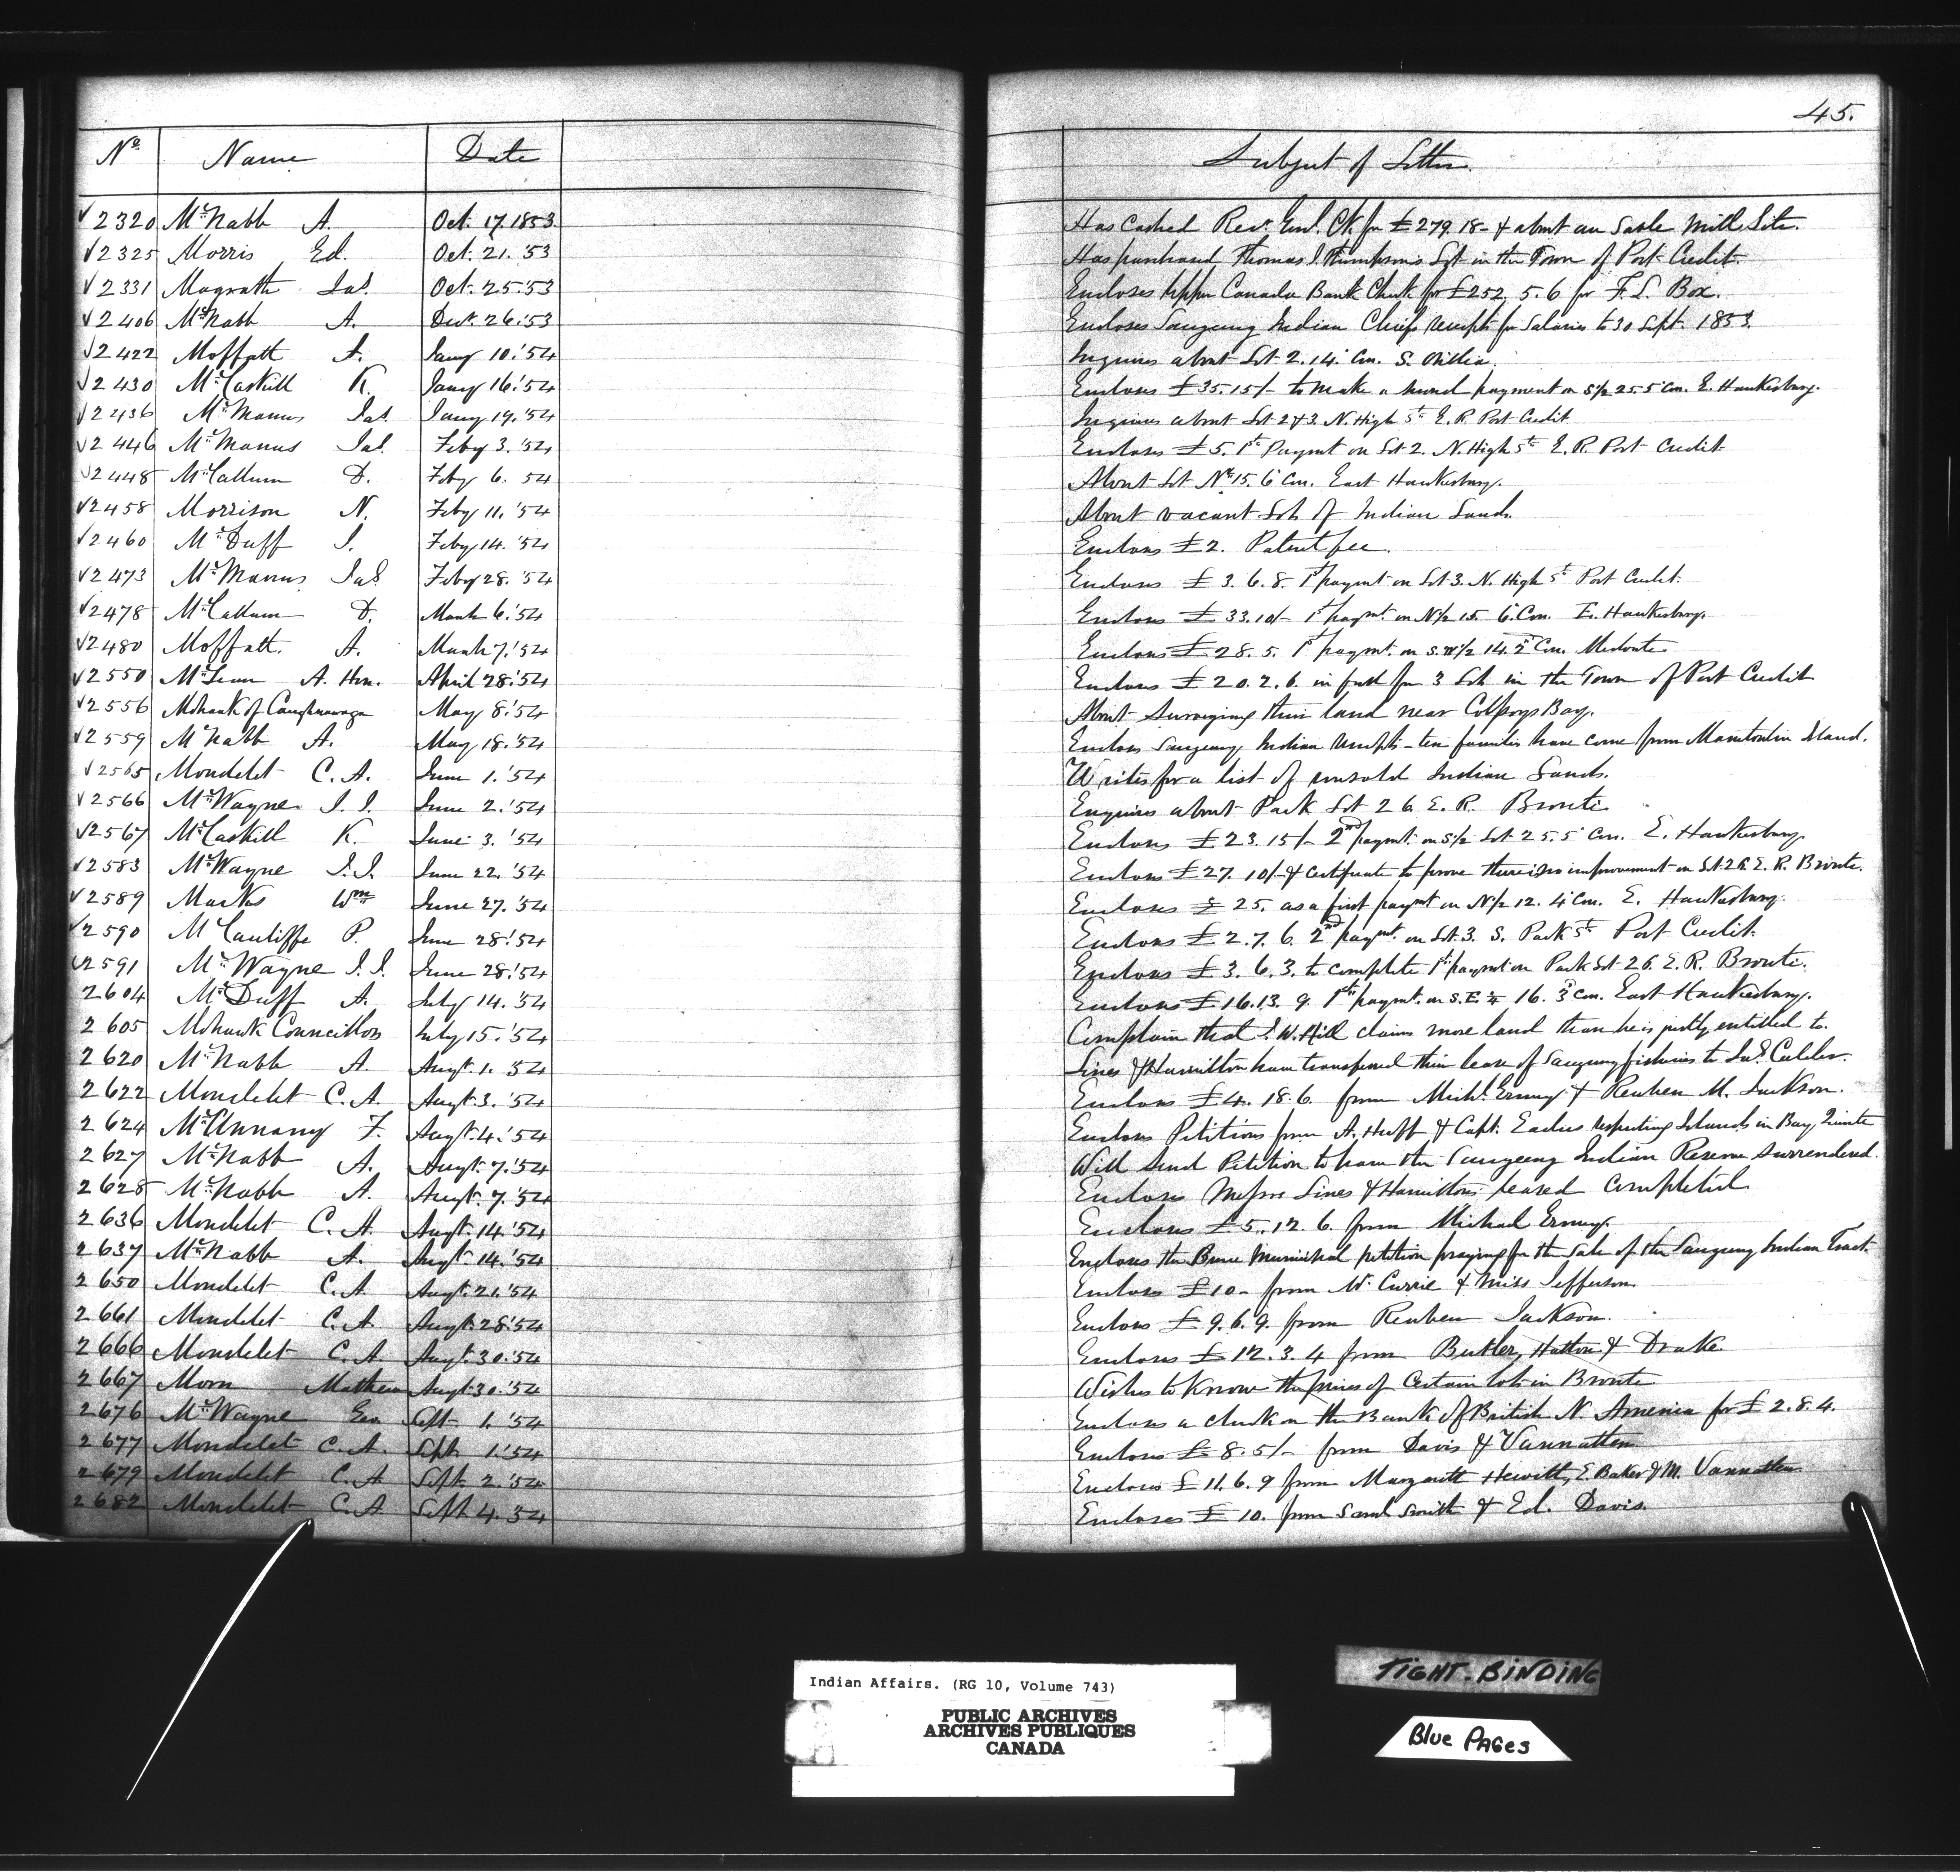 45.
No. Name Date Subject of Letter
√2320 McNabb A. Oct. 17. 1853 Has cashed Rev. Genl. Ck. for £279.18- & about an Sable Mill Site.
√2325 Morris Ed. Oct. 21. '53 Has purchased Thomas J. Thompson's Lot in the Town of Port Credit.
√2331 Magrath Jas. Oct. 25. '53 Encloses Upper Canada Bank Check for £252.5.6 for F. L. Box.
√2406 McNabb A. Dec. 26. '53 Encloses Saugeeng Indian Chiefs receipts for Salaries to 30 Sept. 1853.
√2422 Moffatt A. Jany 10. '54 Inquires about Lot 2. 14. Con. S. Orillia.
√2430 McCaskill K. Jany 16. '54 Encloses £35.15/- to make a second payment on S½ 25. 5 Con. E. Hawkesbury.
√2436 McManus Jas. Jany 19. '54 Inquires about Lot 2 & 3. N. High St. E. R. Port Credit
√2446 McManus Jas. Feby 3. '54 Encloses £5. 1st Paymt on Lot 2. N. High St. E. R. Port Credit
√2448 McCallum D. Feby 6. 54 About Lot No. 15. 6 Con. East Hawkesbury.
√2458 Morrison N. Feby 11. '54 About vacant Lots of Indian Lands.
√2460 McDuff J. Feby 14. '54 Encloses £2. Patent fee.
√2473 McManus Jas. Feby 28. '54 Encloses £3.6.8. 1st paymt on Lot 3. N. High St. Port Credit.
√2478 McCallum D. March 6. '54 Encloses £33.10/- 1st paymt. on N½ 15. 6 Con. E. Hawkesbury.
√2480 Moffatt. A. March 7. '54 Encloses £28.5. 1st paymt. on S.W½ 14. 2 Con. Medonte
√2550 McLean A. Hon. April 28. '54 Encloses £20.2.6. in full for 3 Lots in the Town of Port Credit
√2556 Mohawk of Caughnawaga May 8. '54 About Surveying their land near Colpoys Bay.
√2559 McNabb A. May 18. '54 Encloses Saugeeng Indian receipts - ten families have come from Manitoulin Island.
√2565 Mondelet C. A. June 1. '54 Writes for a list of unsold Indian Lands.
√2566 McWayne J. J. June 2. '54 Enquires about Park Lot 26 E. R. Bronte
√2567 McCaskill K. June 3. '54 Encloses £23.15/- 2nd paymt. on S½ Lot 25. 5 Con. E. Hawkesbury.
√2583 McWayne J. J. June 22. '54 Encloses £27.10/- & certificate to prove there is no improvement on Lot 26. E. R. Bronte.
√2589 Marks Wm June 27. '54 Encloses £25. as a first paymt on N½ 12. 4 Con. E. Hawkesbury.
√2590 McCauliffe P. June 28. '54 Encloses £2.7.6. 2nd paymt. on Lot 3. S. Park St. Port Credit.
√2591 McWayne J. J. June 28. '54 Encloses £3.6.3. to complete 1st paymt on Park Lot 26. E. R. Bronte.
2604 McDuff A. July 14. '54 Encloses £16.13.9. 1st paymt. on S.E.¼ 16. 3 Con. East Hawkesbury.
2605 Mohawk Councillors July 15. '54 Complain that J. W. Hill claims more land than he is justly entitled to.
2620 McNabb A. Augt. 1. 54 Lines & Hamilton have transferred their lease of Saugeeng fisheries to Jas. Calder.
2622 Mondelet C. A. Augt. 3. '54 Encloses £4.18.6. from Michl. & Reuben M. Jackson.
2624 McAnnany F. Augt. 4. '54 Encloses Petitions from A. Huff & Capt. Eadus respecting Islands in Bay Quinte
2627 McNabb A. Augt. 7. '54 Will send Petition to have the Saugeeng Indian Reserve Surrendered.
2628 McNabb A. Augt. 7. '54 Encloses Messrs Lines & Hamiltons leased completed
2636 Mondelet C. A. Augt. 14. '54 Encloses £5.12.6. from Michael
2637 McNabb A. Augt. 14. '54 Encloses the Bruce Municipal petition praying for the Sale of the Saugeeng Indian Tract.
2650 Mondelet C. A. Augt. 21. '54 Encloses £10- from Mr. Currie & Miss Jefferson
2661 Mondelet C. A. Augt. 28. '54 Encloses £9.6.9. from Reuben Jackson.
2666 Mondelet C. A. Augt. 30. '54 Encloses £12.3.4 from Butler, Hatton & Drake.
2667 Morn Mathew Augt. 30. '54 Wishes to know the prices of certain lots in Bronte
2676 McWayne Geo. Sept. 1. '54 Encloses a check on the Bank of British N. America for £2.8.4.
2677 Mondelet C. A. Sept. 1. '54 Encloses £8.5/- from Davis & Vannatten
2679 Mondelet C. A. Sept. 2. '54 Encloses £11.6.9 from Margarett Hewitt, E. Baker & M. Vannatten
2682 Mondelet C. A. Sept. 4. 54 Encloses £10. from Saml Smith & Ed. Davis.
Indian Affairs. (RG 10, Volume 743)
PUBLIC ARCHIVES
ARCHIVES PUBLIQUES
CANADA
TIGHT-BINDING
Blue PAGes